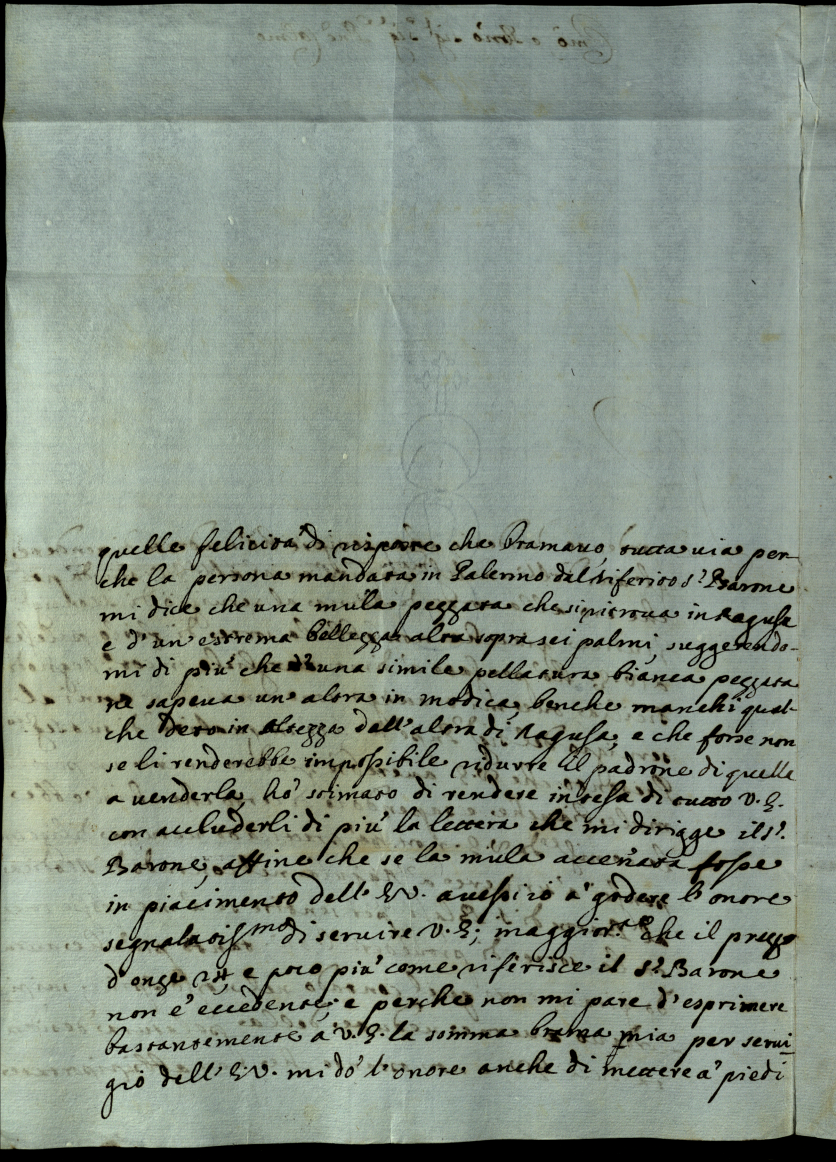 quelle felicità di risposte che bramavo, tutta via per-
che la persona mandata in Palermo dal riferito S.r Barone
mi dice che una mula pezzata che si ritrova in Ragusa
e d'un estrema bellezza alta sopra sei palmi, suggerendo-
mi di più che d'una simile pellatura bianca pezzata
ne sapeva un altra in modica, benche manchi qual-
che deto in altezza dall'altra di Ragusa, e che forse non
se li renderebbe impossibile ridurre il padrone di quelle
a venderla, hò stimato di rendere intesa di tutto V. E.
con accluderli di più la lettera che mi dirigge il S.r
Barone, affine che se la mula accennata fosse
in piacimento dell'E.V. avessi io à godere l'onore
segnalatissmo di servire V. E; maggior.te che il prezzo
d'onze e poco più come riferisce il S.r Barone
non è eccedente, e perche non mi pare d'esprimere
bastantemente à V. E. la somma brama mia per servi-
gio dell'E.V. mi dò l'onore anche di mettere à piedi